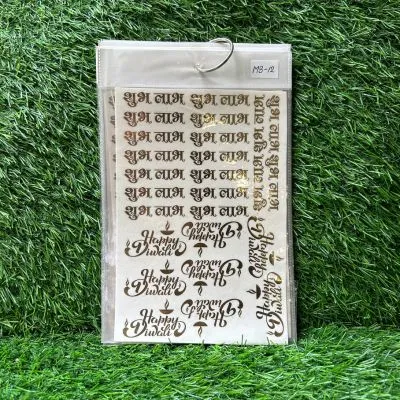 MB-12
शुभ लाभ शुभ लाभ
शुभ लाभ शुभ लाभ
शुभ लाभ शुभ लाभ
शुभ लाभ शुभ लाभ
शुभ लाभ शुभ लाभ
शुभ लाभ शुभ लाभ
शुभ लाभ शुभ लाभ
शुभ लाभ शुभ लाभ
शुभ लाभ शुभ लाभ
Happy
Diwali
Happy
Diwali
Happy
Diwali
Happy
Diwali
Happy
Diwali
Happy
Diwali
Happy
Diwali
Happy
Diwali